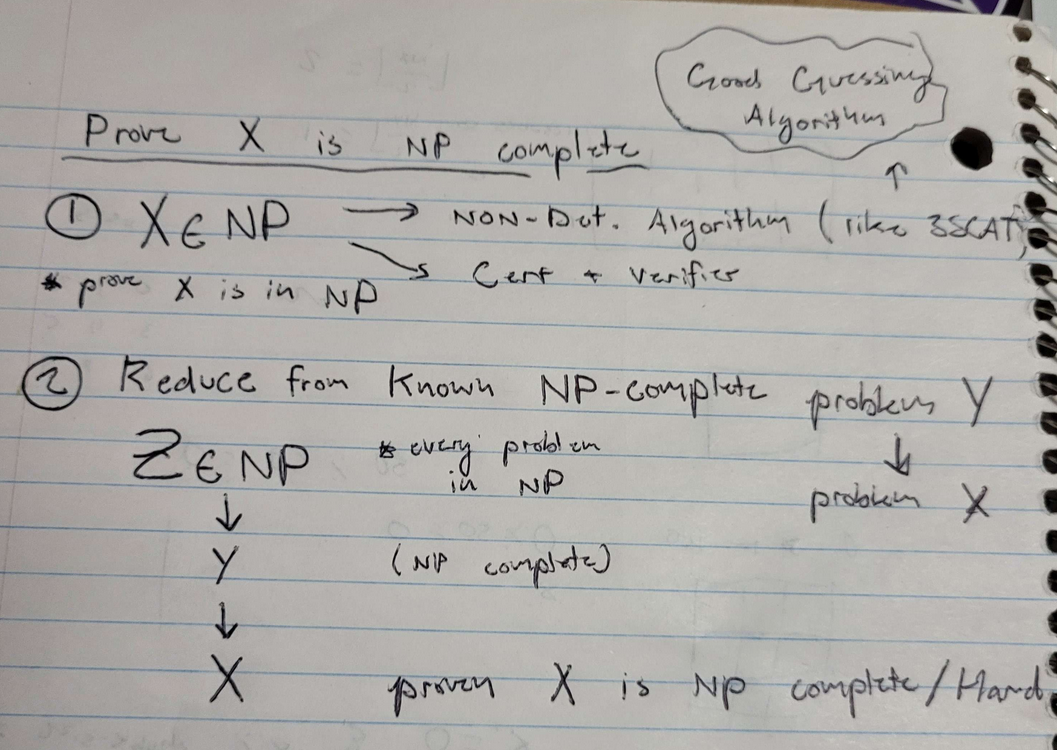 Good Guessing
Algorithm
Prove X is NP complete
↑
① X ∈ NP → NON-Det. Algorithm (like 3SCAT)
→ Cert + Verifier
* prove X is in NP
② Reduce from Known NP-complete problem Y
↓
problem X
Z ∈ NP * every problem
in NP
↓
Y (NP complete)
↓
X proven X is NP complete/Hard